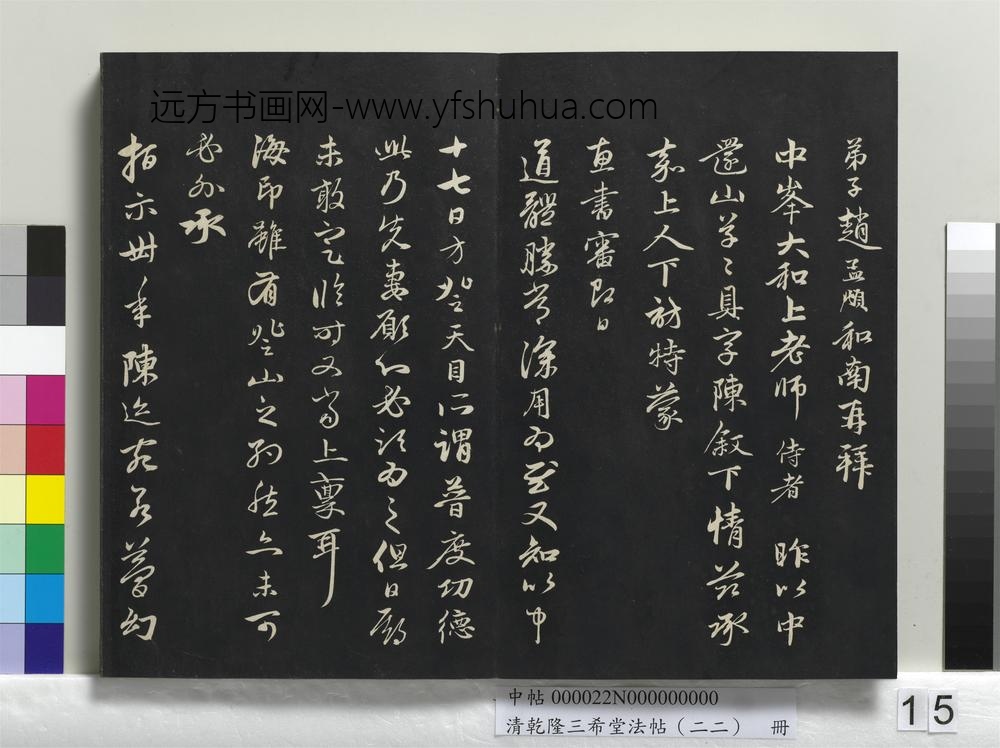 远方书画网-www.yfshuhua.com
弟子趙孟頫和南再拜
中峯大和上老师侍者 昨以中
還山草〻具字陳叙下情茲承
嘉上人下訪特蒙
惠書審即日
道體勝常深用為慰又知以中
十七日方登天目所謂普度功德
此乃先妻願心必欲為之但日
未敢定臨时又当上稟耳
海印雖有登山之約然亦未可
必承
指示卅年陳迹宛若夢幻
中帖 000022N000000000
清乾隆三希堂法帖(二二) 冊
15